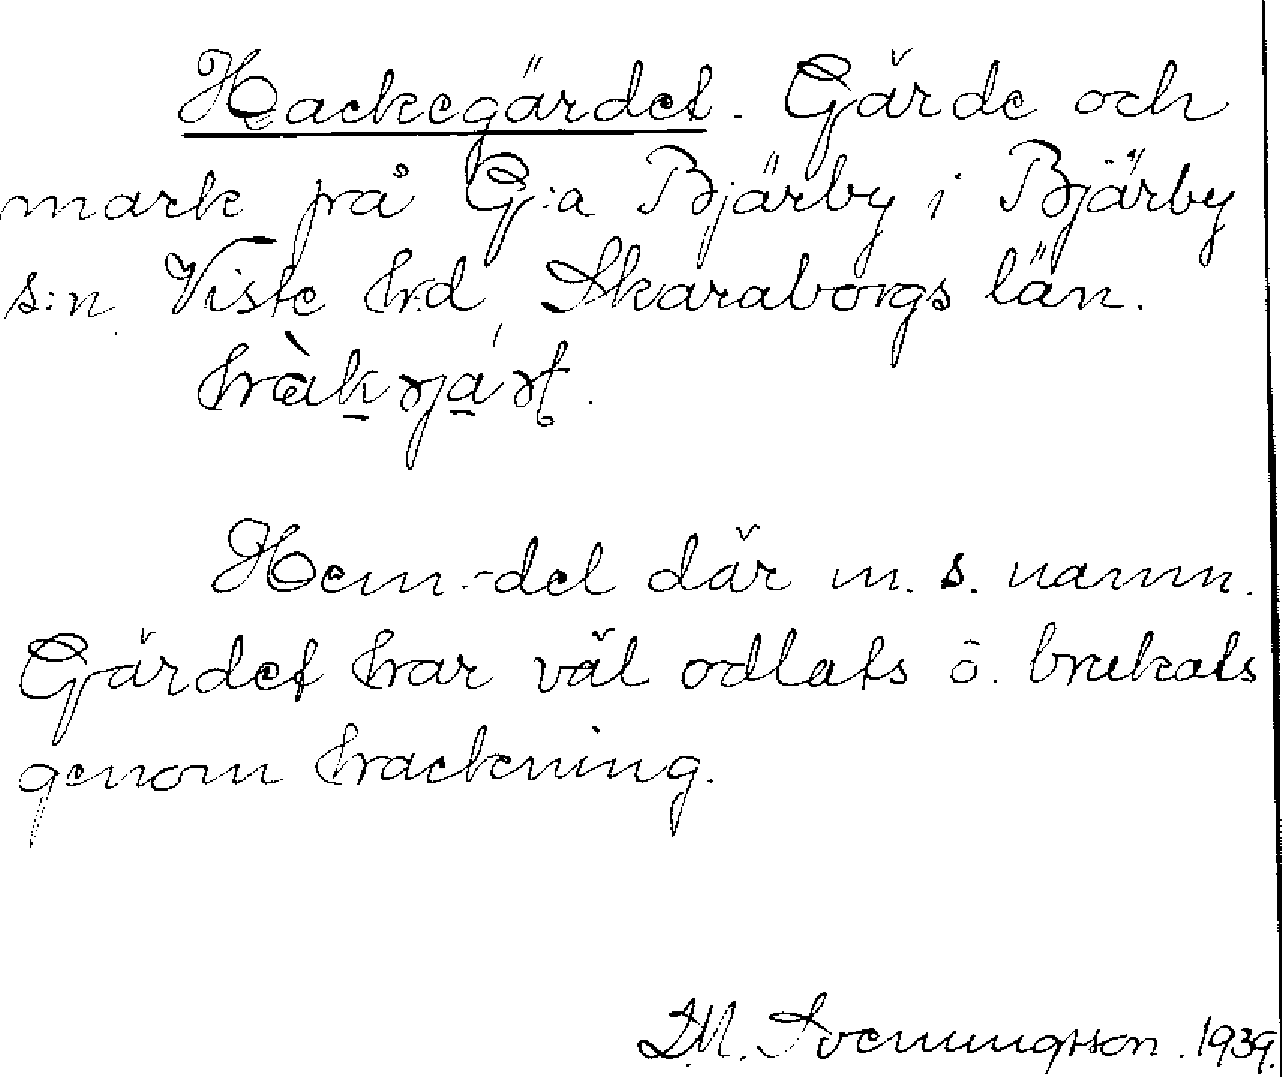 Hackegärdet. Gärde och
mark på G:a Bjärby i Bjärby
s:n. Viste hrd, Skaraborgs län.
hàkrjá́rt.
Hem.-del där m. s. namn.
Gärdet har väl odlats o. brukats
genom hackning.
D.M. Svenningsson. 1939.